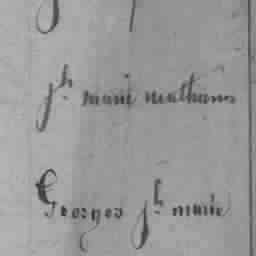 jh marie mathurin
Georges jh marie